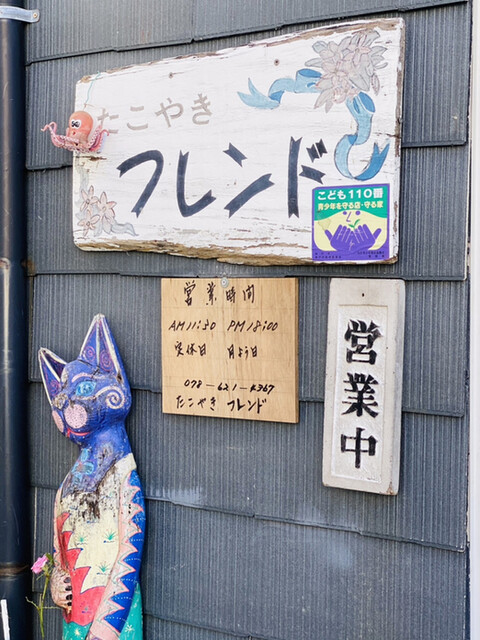 たこやき
フレンド
こども110番
青少年を守る店・守る家
営業時間
AM 11:30 PM 18:00
定休日 月よう日
078-621-4367
たこやき フレンド
営業中